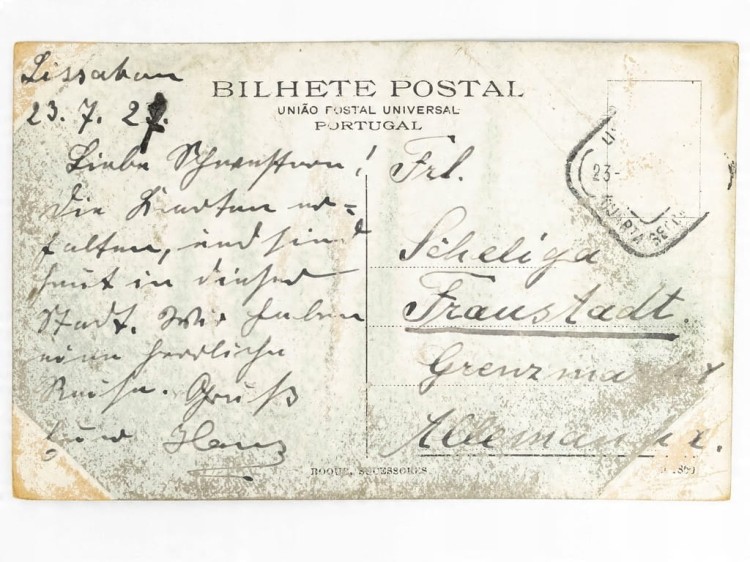 Lissabon
23. 7. 27.
BILHETE POSTAL
UNIÃO POSTAL UNIVERSAL
PORTUGAL
Liebe Schwestern!
Die Karten er=
halten, und sind
heut in dieser
Stadt. Wir haben
eine herrliche
Reise. Gruß
Euer Hans
Frl.
Scheliga
Fraustadt.
Grenzmark
23-
QUARTA SEC
ROQUE, SUCESSORES